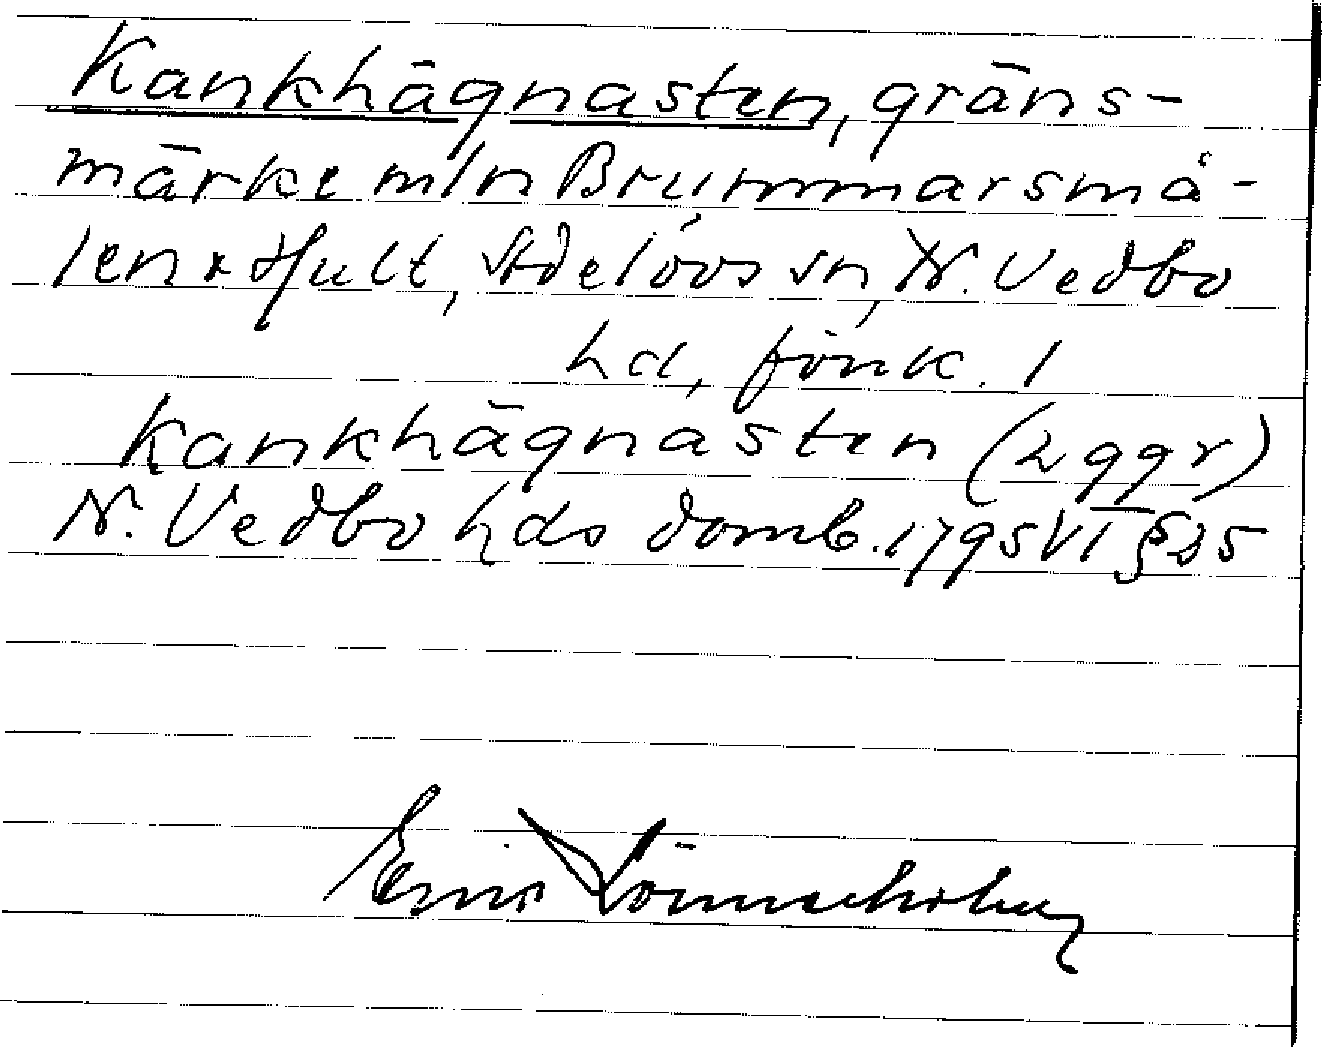 Kankhägnasten, gräns-
märke mln Brummarsmå-
len x Hult, Adelövs sn, N. Vedbo
hd, Jönk. l
Kankhägnasten (2 ggr)
N. Vedbo hds domb. 1795 VI § 25